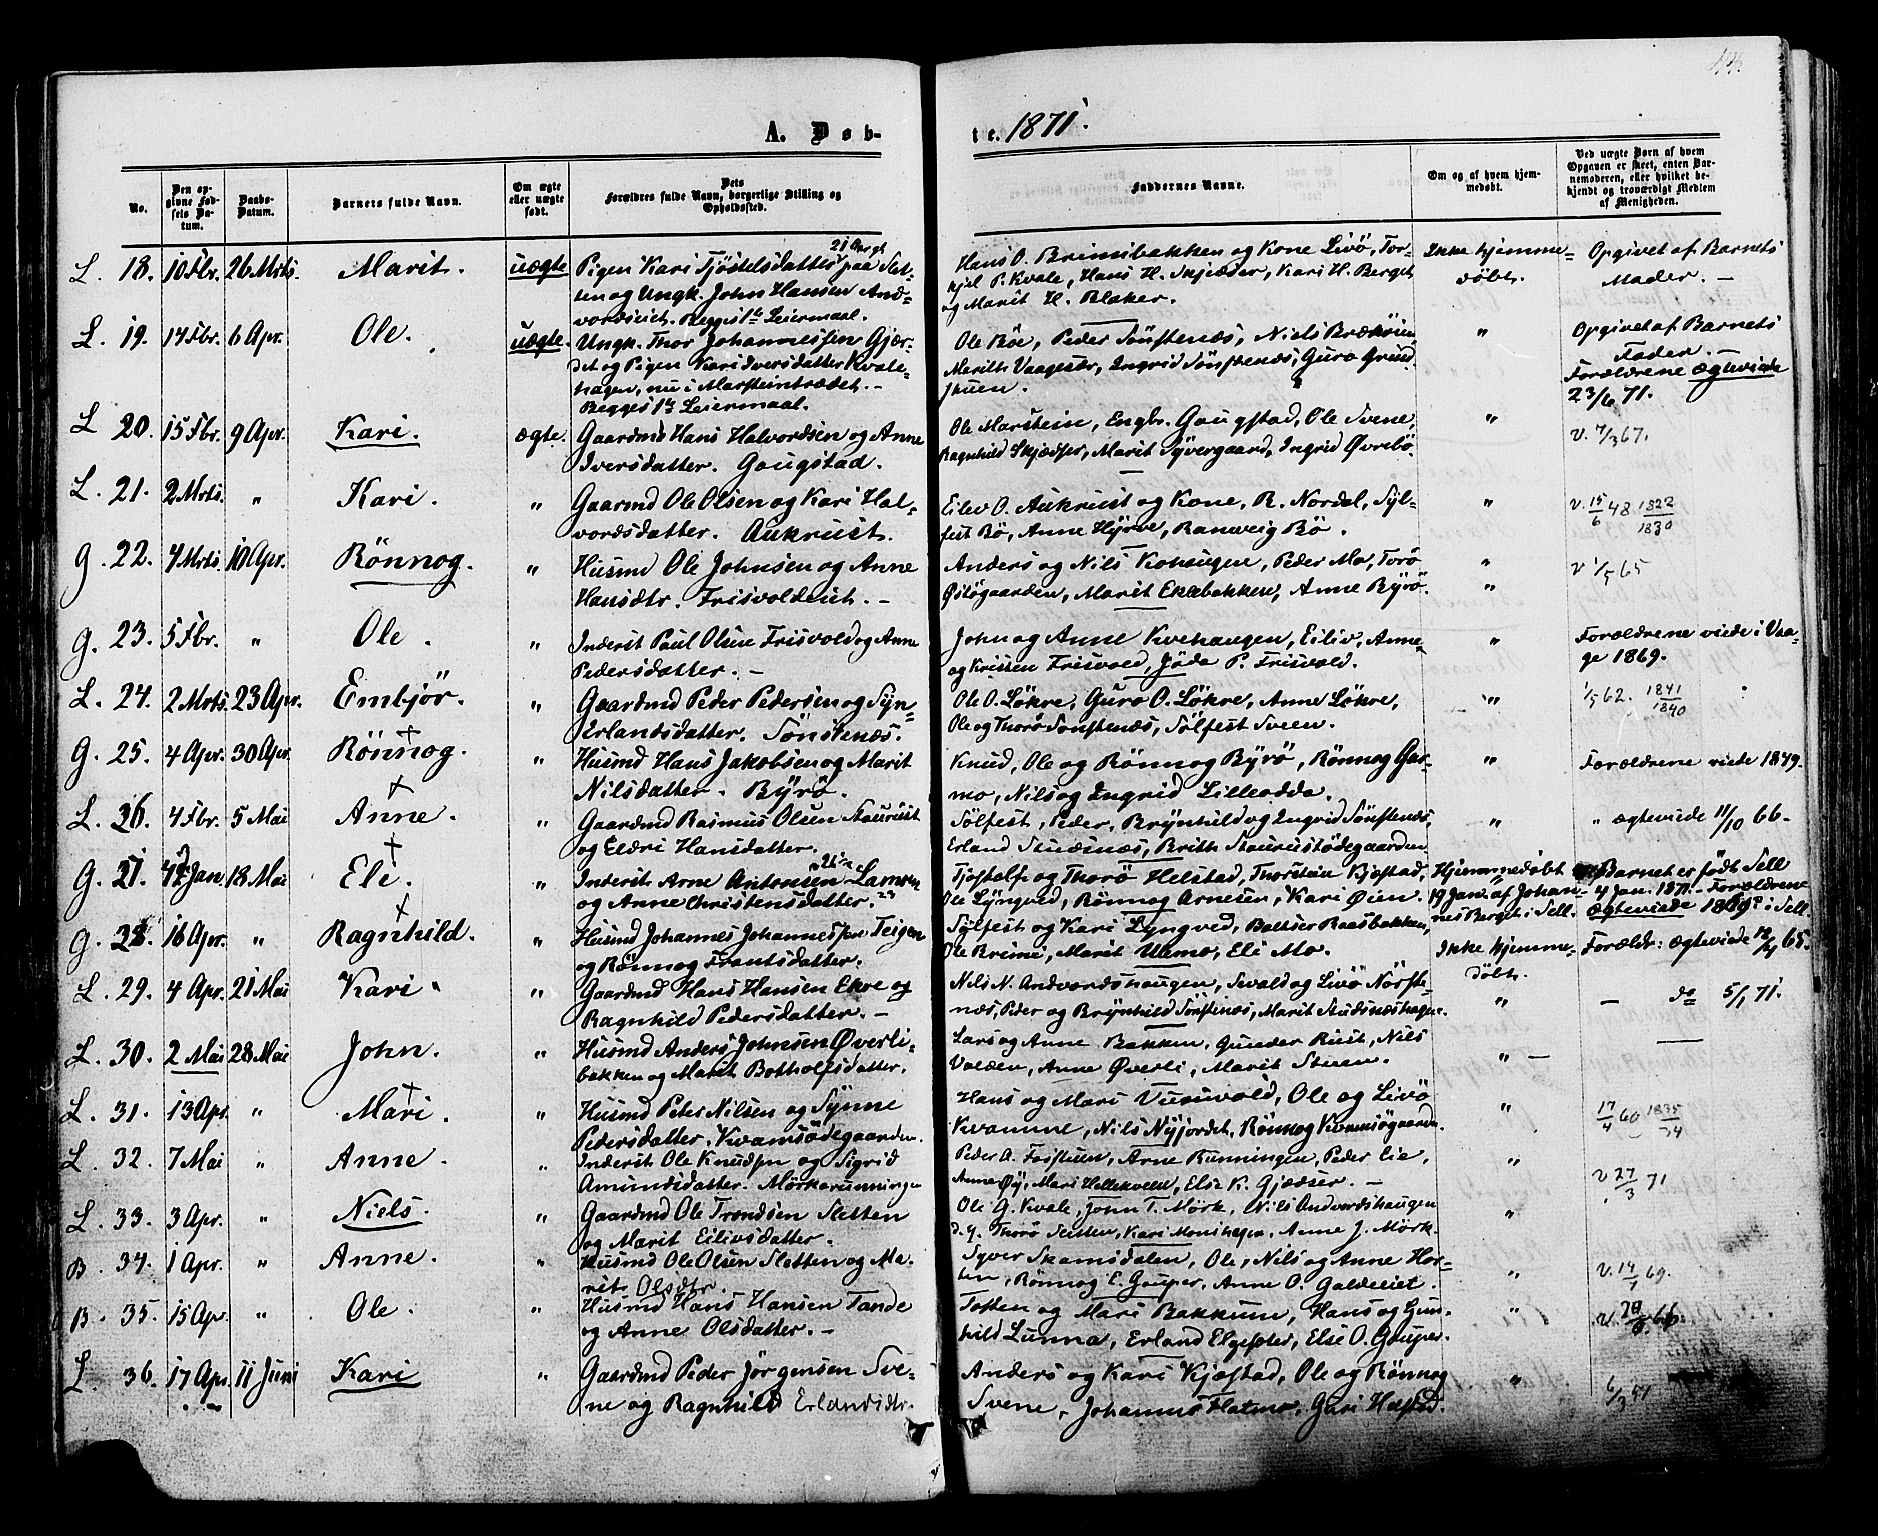 44.
A. Døb-
te. 1871.
No.
Den op-
givne Fød-
sels Da-
tum.
Daabs-
Datum.
Barnets fulde Navn.
Om ægte
eller uægte
født.
Dets
Forældres fulde Navn, borgerlige Stilling og
Opholdssted.
Faddernes Navne.
Om og af hvem hjem-
medøbt.
Ved uægte Børn af hvem
Opgaven er skeet, enten Bar-
nemoderen, eller hvilket be-
kjendt og troværdigt Medlem
af Menigheden.
L. 18. 10 Fbr. 26 Mrts. Marit. uægte Pigen Kari Tjöstelsdatter paa Slet-
ten og Ungk. John Hansen And-
vordseiet. Begges 1ste Leiermaal.
Hans O. Brimibakken og Kone Livö, Tor-
kjel P. Kvale, Hans H. Skjæder, Kari H. Berget
og Marit H. Blaker.
Ikke hjemme-
döbt.
Opgivet af Barnets
Moder. —
L. 19. 14 Fbr. 6 Apr. Ole. uægte. Ungk. Thor Johannessen Gjær-
det og Pigen Kari Iversdatter Kvale-
hagen, nu i Marsteintrædet. -
Begges 1ste Leiermaal.
Ole Böe, Peder Sönstenæs, Niels Bræköien
Merith Vaagesær, Ingrid Sönstenæs, Guro Grind
stuen.
"
Opgivet af Barnets
Fader. —
Forældrene ægteviede
23/6 71.
L 20. 15 Fbr. 9 Apr. Kari. ægte. Gaardmd Hans Halvordsen og Anne
Iversdatter. Gaugstad.
Ole Marstein, Engbr. Gaugstad, Ole Svene,
Ragnhild Skjædser, Marit Syvergaard, Ingrid Øvrebö
"
v. 4/3 67.
L. 21. 2 Mrts. " Kari. " Gaarmd Ole Olsen og Kari Hal-
vordsdatter. Aukrust.
Eilev O. Aukrust og Kone, R. Nordal, Syl-
fest Bö, Anne Hyrve, Ranveig Bö.
"
v. 15/6 48 1822/1830
G. 22. 4 Mrts. 10 Apr. Rönnog. " Husmd Ole Johnsen og Anne
Hansdtr. Frisvoldeiet. -
Anders og Nils Kohaugen, Peder Mo, Torö
Östögaarden, Marit Ekrebakken, Anne Byrö.
"
"
v 1/5 65
G. 23. 5 Fbr. " Ole. " Inderst Paul Olsen Frisvold og Anne
Pedersdatter. —
John og Anne Kvehaugen, Eiliv, Anne
og Kristen Frisvold, Jöda P. Frisvold.
"
Forældrene viede i Vaa-
ge 1869.
L. 24. 2 Mrts. 23 Apr. Embjör. " Gaardmd Peder Pedersen og Syn-
Erlandsdatter. Sönstenæs.
Ole O. Lökre, Guro O. Lökre, Anne Lökre,
Ole og Thorö Sönstenæs, Sölfest Sveen.
"
1/5 62. 1841/1840
G. 25. 4 Apr. 30 Apr. Rönnog. " Husmd Hans Jakobsen og Marit
Nilsdatter. Byrö.
Knud, Ole og Rönnog Byrö, Rönnog Gar-
mo, Nils og Ingrid Lilleodde.
"
Forældrene viede 1849.
L. 26. 4 Fbr. 5 Mai Anne. " Gaardmd Rasmus Olsen Staurust
og Eldri Hansdatter.
Sölfest, Peder, Brynhild og Ingrid Sönstenæs,
Erland Stuenæs, Brith Staurustödegaarden
"
" ægteviede 11/10 66.
G. 27. 4 Jan. 18 Mai Eli. " Inderst Arne Antonsen Lamoen
og Anne Christensdatter.
Tjostolf og Thorö Helstad, Thorstein Kjæstad,
Ole Lyngved, Rönnog Arnesen, Kari Öien.
Hjemmedöbt
19 Jan. af Johan-
nes Berget i Sell.
Barnet er födt i Sell
4 Jan. 1871. - Forældrene
ægteviede 1869 i Sell.
G. 28. 16 Apr. " Ragnhild. " Husmd Johannes Johannessen Teigen
og Rönnog Frantsdatter.
Sölfest og Kari Lyngved, Baltser Raasbakken,
Ole Brimi, Marit Ulemo, Eli Mo.
Ikke hjemme-
döbt.
Forældr: ægteviede 12/4 65.
L. 29. 4 Apr. 21 Mai Kari. " Gaardmd Hans Hansen Ekre og
Ragnhild Pedersdatter. —
Nils N. Andvordshaugen, Sevald og Livö Nörste-
næs, Peder og Brynhild Sönstenæs, Marit Studsnæshagen.
"
— do 5/1 71.
L. 30. 2 Mai 28 Mai John. " Husmd Anders Johnsen Øverli-
bakken og Marit Botholfsdatter.
Lars og Anne Bakken, Gunder Rust, Nils
Volden, Anne Øverli, Marit Stuen.
" —
—
L. 31. 13 Apr. " Mari. " Husmd Peter Nilsen og Synne
Pedersdatter. Kvamsödegaarden.
Hans og Mari Vuluvold, Ole og Livö
Kvamme, Nils Nyjordet, Rönnog Kvamsögaarden.
"
17/4 60 1835/34
L. 32. 7 Mai " Anne. " Inderst Ole Knudsen og Sigrid
Amundsdatter. Mörkarunningen
Peder A. Fosstuen, Arne Runningen, Peder Eie,
Anne Øy, Mari Hellekveen, Else K. Gjædser. —
"
v 27/3 71
L. 33. 3 Apr. " Niels. " Gaardmd Ole Trondsen Sletten
og Marit Eilivsdatter.
Ole G. Kvale, John T. Mörk, Nils Andvordshaugen
d. y. Thorö Sletten, Kari Monshagen, Anne J. Mörk.
"
B. 34. 1 Apr. " Anne. " Husmd Ole Olsen Sletten og Ma-
rit Olsdtr.
Syver Skamsdalen, Ole, Nils og Anne Hor-
ten, Rönnog E. Gauper, Anne O. Galdeeiet.
"
v. 14/7 69.
B. 35. 15 Apr. " Ole. " Husmd Hans Hansen Tande
og Anne Olsdatter. —
Totten og Mari Bakkum, Hans og Gun-
hild Lunna, Erland Elgester, Else O. Gauper.
"
L. 36. 17 Apr. 11 Juni Kari " Gaardmd Peder Jörgensen Sve-
ne og Ragnhild Erlandsdtr.
Anders og Kari Kjæstad, Ole og Rönnog
Svene, Johannes Flatmo, Gari Helstad.
"
6/3 51